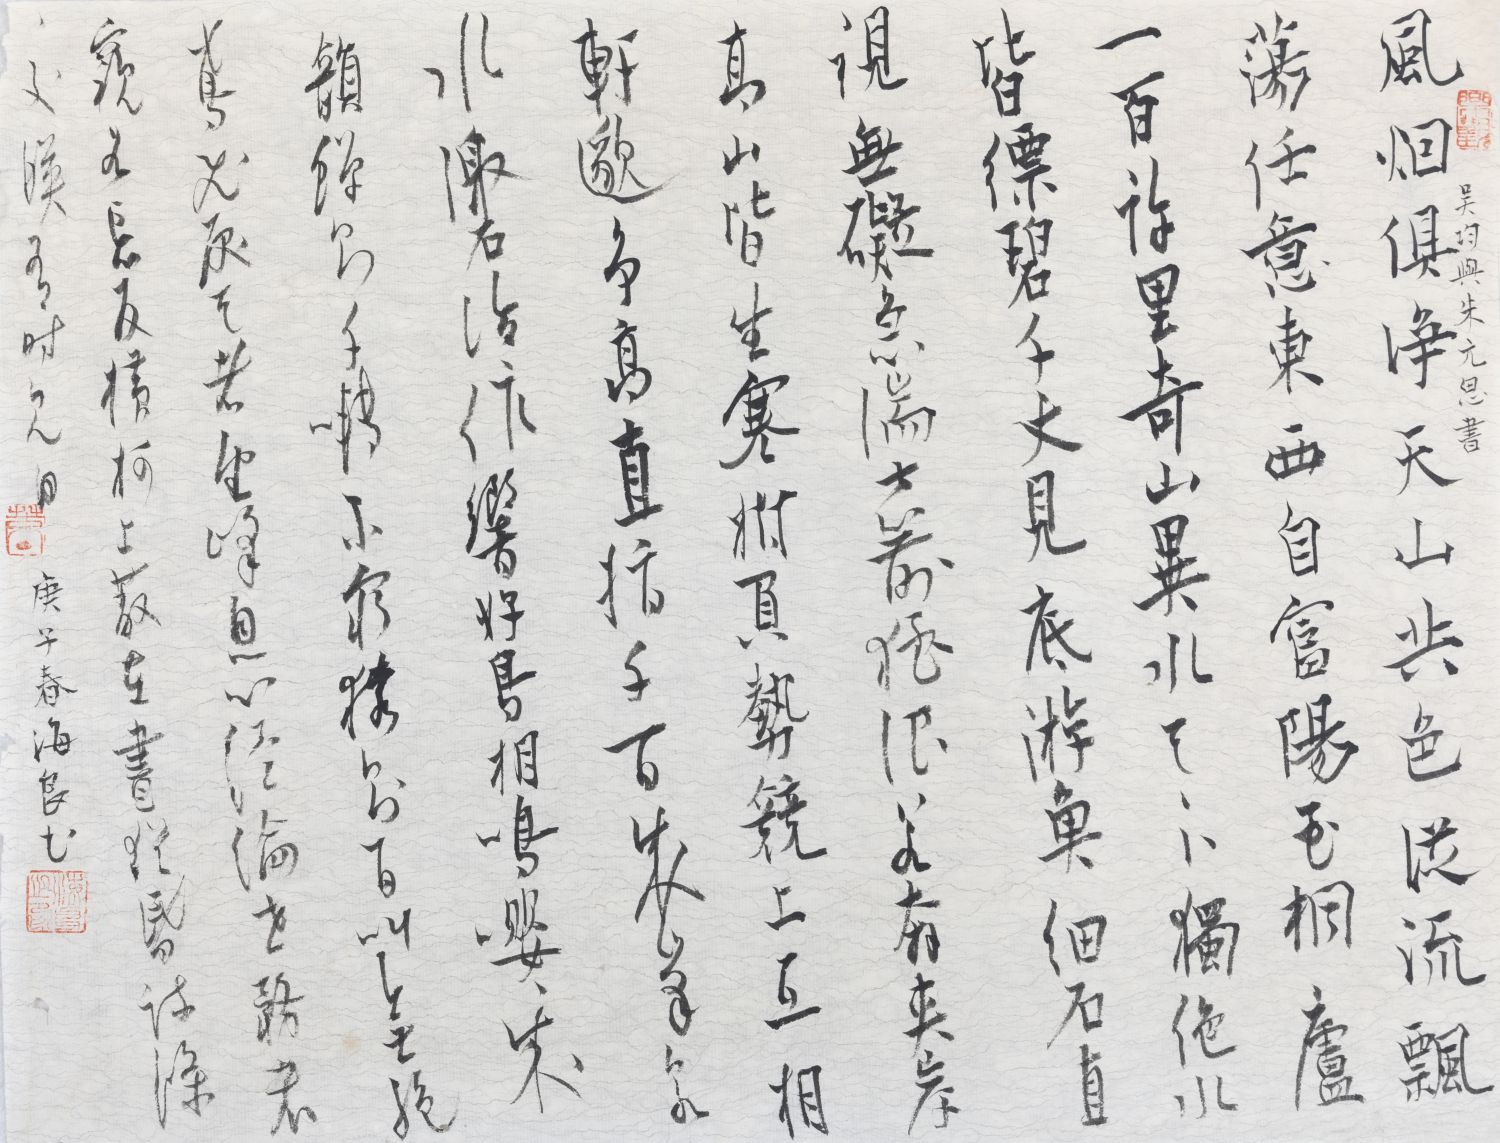 吴均與朱元思書
風烟俱净天山共色從流飄
蕩任意東西自富陽至桐廬
一百許里奇山異水天下獨绝水
皆縹碧千丈見底游魚細石直
視無礙急湍甚箭猛浪若奔夾岸
高山皆生寒樹負勢競上互相
軒邈争高直指千百成峰泉
水激石泠作響好鳥相鳴嚶〻成
韻蟬則千囀不窮猿則百叫無絶
鳶飛戾天者望峰息心經綸世務者
窺谷忘反横柯上蔽在晝猶昏疏條
交映有時見日
庚子春海良书